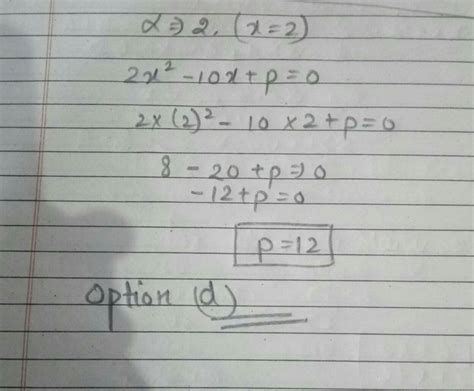 α ⇒ 2, (x=2)
2x² - 10x + p = 0
2×(2)² - 10 × 2 + p = 0
8 - 20 + p ⇒ 0
-12 + p = 0
p = 12
Option (d)